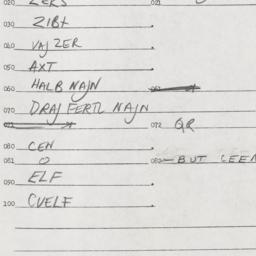 020 ZEKS 021
030 ZIBT
040 VAJZER
050 AXT
060 HALB NAJN
070 DRAJ FERTL NAJN
072 QR
080 CEN
081 O BUT CEEN
090 ELF
100 CVELF